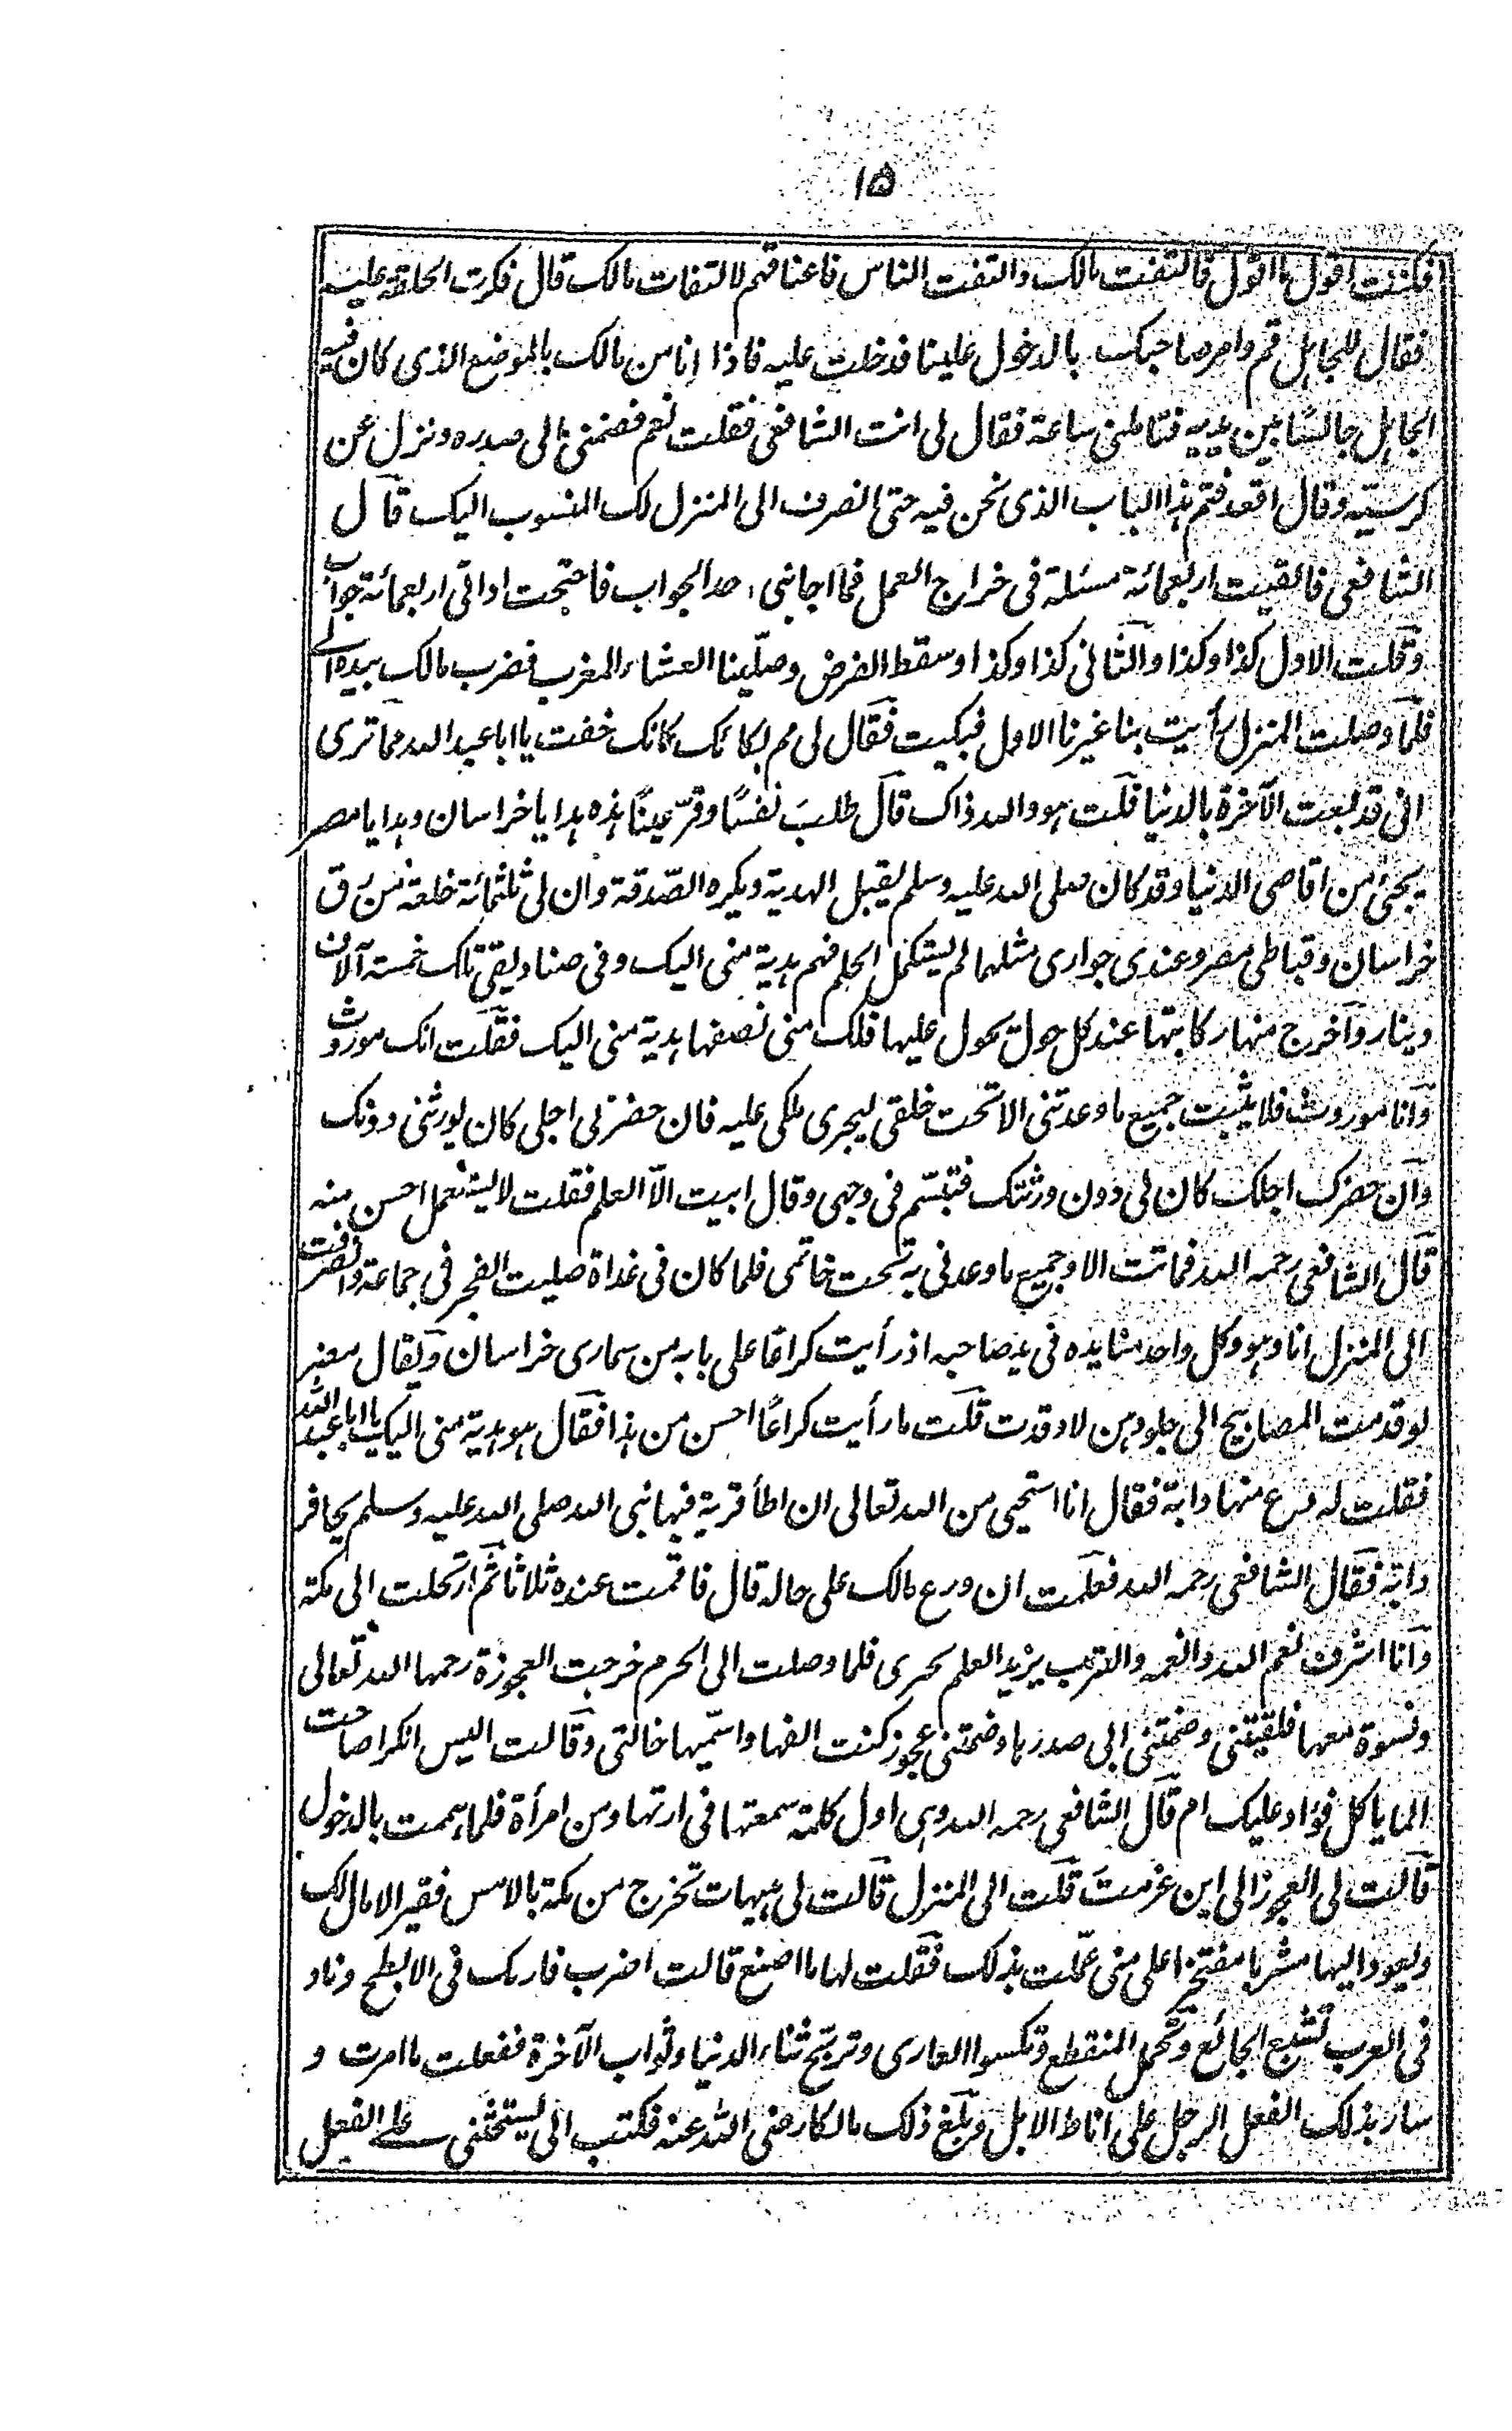 ١٥
فكنت اقول ما اقول فالتفت مالك والتفت الناس فاعناقهم لالتفات مالك قال فكرت الحلقة عليه
فقال للجاهل قم وامر صاحبك بالدخول علينا فدخلت عليه فاذا انا من مالك بالموضع الذى كان فيه
الجاهل جالسًا بين يديه فتاملنى ساعة فقال لى انت الشافعى فقلت نعم فضمنى الى صدره ونزل عن
كرسيّه وقال اقعد فتم هذا الباب الذى نحن فيه حتى انصرف الى المنزل لك المنسوب اليك قال
الشافعى فالقيت اربعمائة مسئلة فى خراج العمل فما اجابنى احد الجواب فاحتجت ادائى اربعمائة جواب
وقلت الاول كذا وكذا والثانى كذا وكذا وسقط الفرض وصلّينا العشاء المغرب فضرب مالك بيده الى
فلما وصلت المنزل رأيت بنا غيرنا الاول فبكيت فقال لى مم بكائك كانك خفت يا ابا عبد الله مما ترى
انى قد بعت الآخرة بالدنيا قلت هو والله ذاك قال طلب نفسًا وقرّ عينًا هذه هدايا خراسان وهدايا مصر
يجئ من اقاصى الدنيا وقد كان صلى الله عليه وسلم يقبل الهدية ويكره الصّدقة وان لى ثلثمائة خلعة من رق
خراسان وقباطى مصر وعندى جوارى مثلها لم يستكمل الحلم فهم هدية منى اليك وفى صناديقى تلك خمسة آلاف
دينار وآخرج منها ركابتها عند كل حول يحول عليها فلك منى نصفها هدية منى اليك فقلت انك موروث
وانا موروث فلا يثبت جميع ما وعدتنى الا تحت خلقى ليجرى ملكى عليه فان حضرنى اجلى كان لورثتى دونك
وان حضرك اجلك كان لى دون ورثتك فتبسّم فى وجهى وقال ابيت الّا العلم فقلت لا ليستعمل احسن منه
قال الشافعى رحمه الله فما تمت الا وجميع ما وعدنى به تحت خاتمى فلما كان فى غداة صليت الفجر فى جماعة وانصرفت
الى المنزل انا وهو وكل واحد منا يده فى يد صاحبه اذ رأيت كراعًا على بابه من سمارى خراسان ويقال مصر
لو قدمت المصابيح الى جلودهن لا وقدت قلت ما رأيت كراعًا احسن من هذا فقال هو هدية منى اليك يا ابا عبد الله
فقلت له دع منها دابة فقال انا استحيى من الله تعالى ان اطأ قرية فيها نبى الله صلى الله عليه وسلم بحافر
دابة فقال الشافعى رحمه الله فعلمت ان ورع مالك على حاله قال فاقمت عنده ثلاثا ثم ارتحلت الى مكة
وانا اشرف نعم الله وانعمه والتقرب يزيد العلم بحرى فلما وصلت الى الحرم خرجت العجوزة رحمها الله تعالى
ونسوة معها فلقيتنى وضمتنى الى صدرها وضمتنى عجوز كنت الفها واسمّيها خالتى وقالت اليس انكرا صاحت
المنايا كل فؤاد عليك ام قال الشافعى رحمه الله وهى اول كلمة سمعتها فى ارتها ومن امرأة فلما هممت بالدخول
قالت لى العجوز الى اين عزمت قلت الى المنزل قالت لى هيهات تخرج من مكة بالامس فقير الا مال لك
وليعود اليها مشربا مفتخرا على منى عملت بذلك فقلت لها ما اصنع قالت اضرب فاربك فى الابطح وناد
فى العرب تشبع الجائع وتحمل المنقطع وتكسوا العارى وتربح ثناء الدنيا وثواب الآخرة ففعلت ما امرت و
سار بذلك الفعل الرجل على اناط الابل وبلغ ذلك مالكا رضى الله عنه فكتب الى ليستحثنى على الفعل